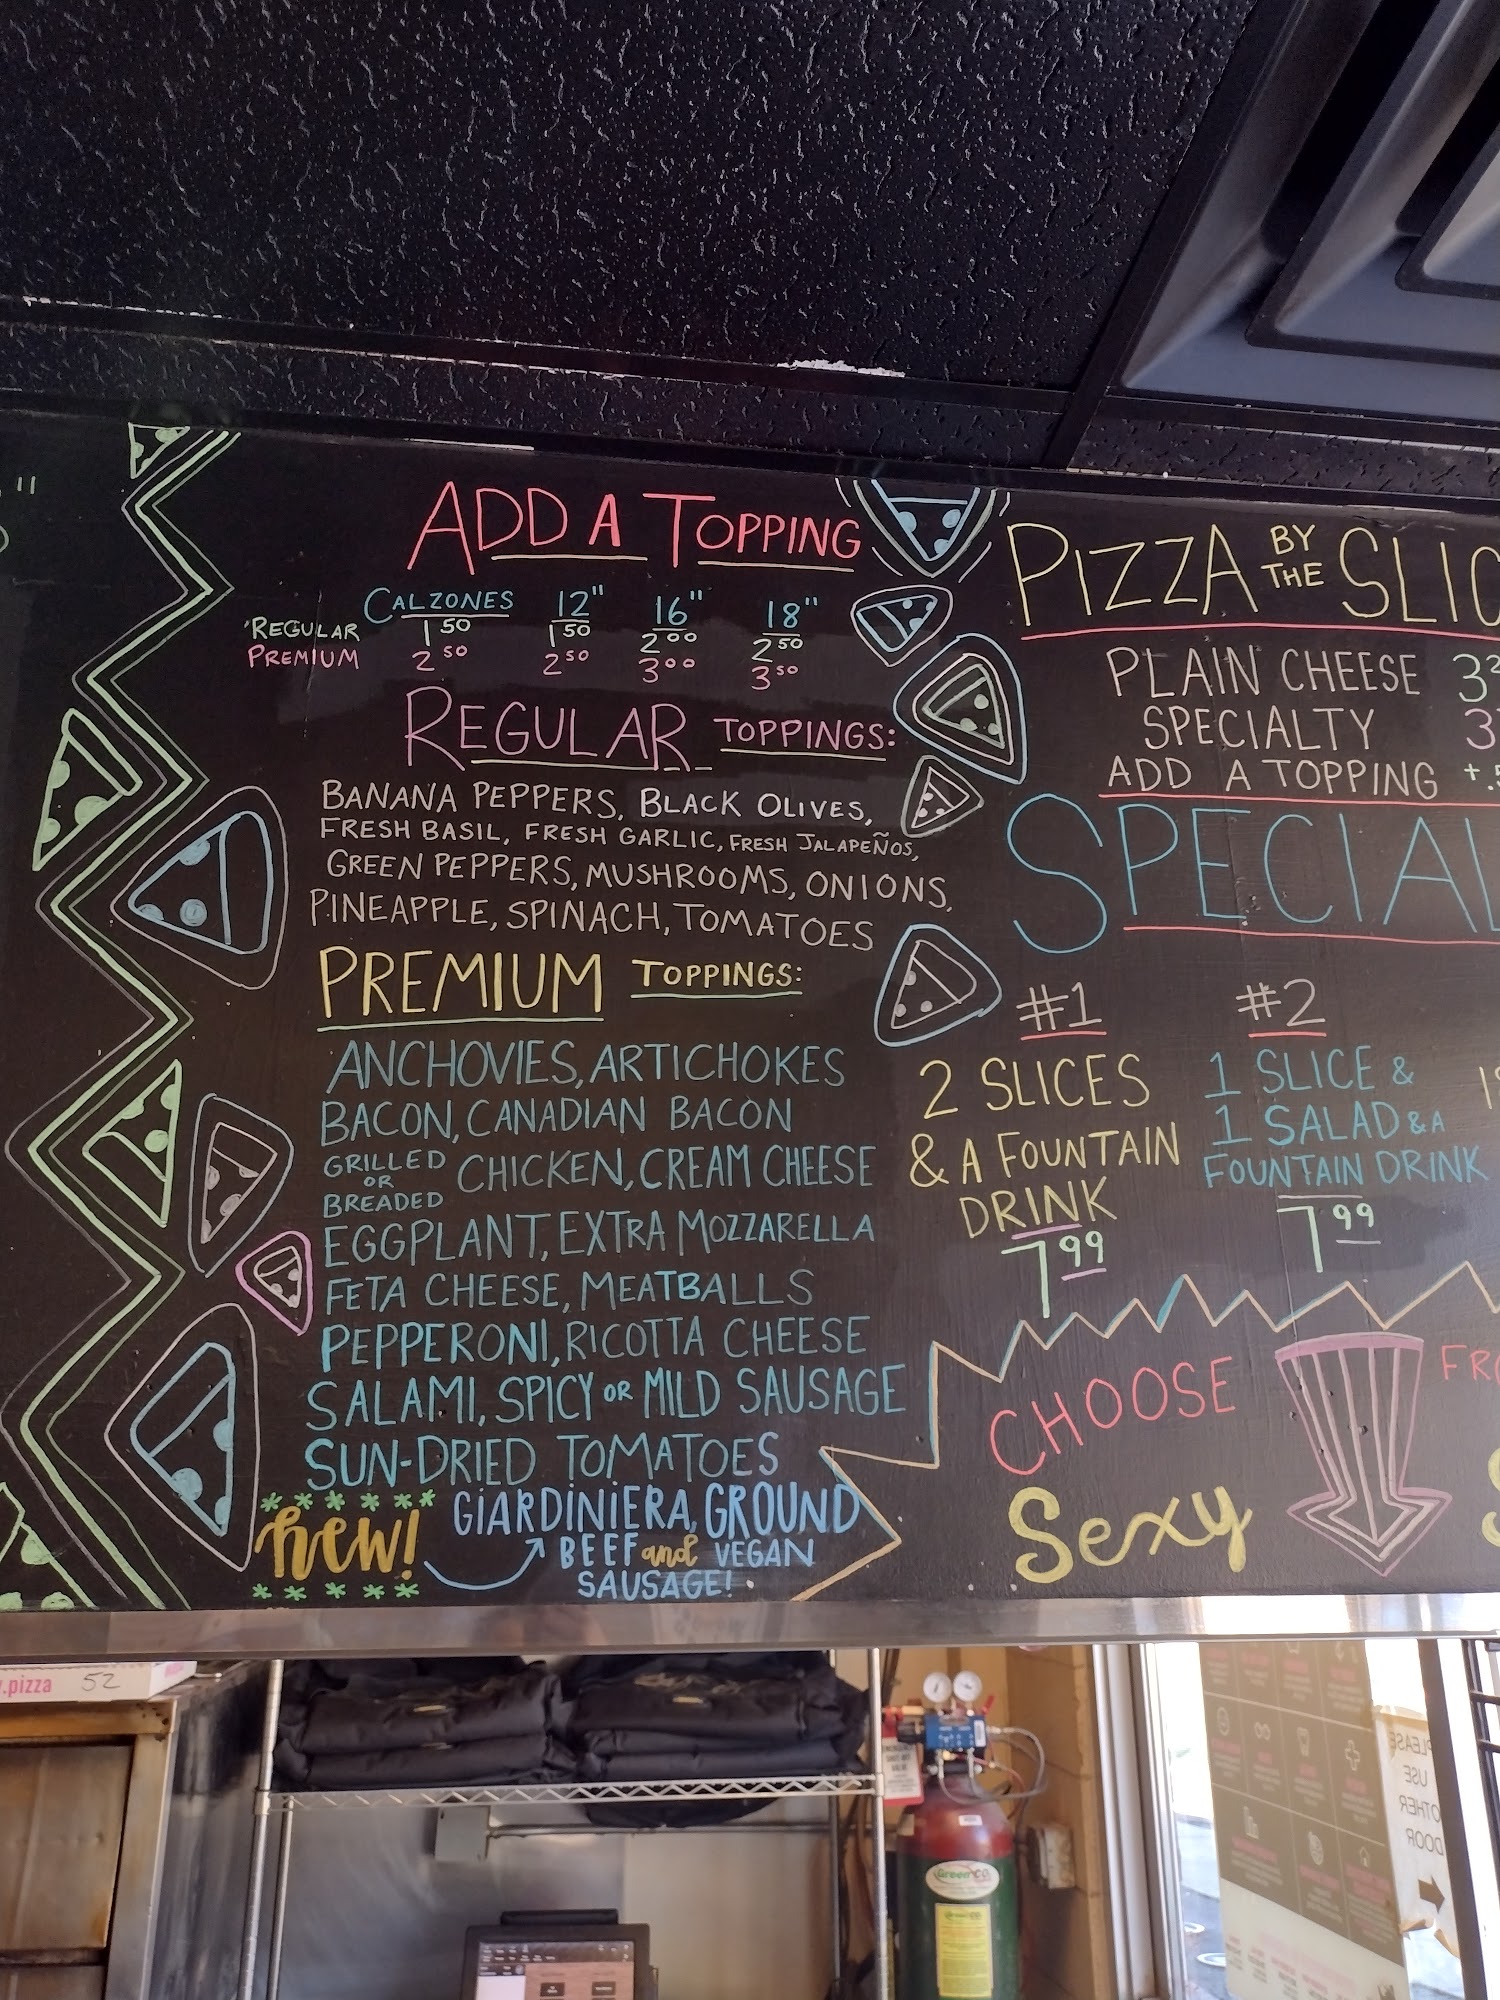 ADD A TOPPING
CALZONES 12" 16" 18"
REGULAR 1 50 1 50 2 00 2 50
PREMIUM 2 50 2 50 3 00 3 50
REGULAR TOPPINGS:
BANANA PEPPERS, BLACK OLIVES,
FRESH BASIL, FRESH GARLIC, FRESH JALAPEÑOS,
GREEN PEPPERS, MUSHROOMS, ONIONS,
PINEAPPLE, SPINACH, TOMATOES
PREMIUM TOPPINGS:
ANCHOVIES, ARTICHOKES
BACON, CANADIAN BACON
GRILLED OR BREADED CHICKEN, CREAM CHEESE
EGGPLANT, EXTRA MOZZARELLA
FETA CHEESE, MEATBALLS
PEPPERONI, RICOTTA CHEESE
SALAMI, SPICY OR MILD SAUSAGE
SUN-DRIED TOMATOES
new! GIARDINIERA, GROUND
BEEF and VEGAN
SAUSAGE!
PIZZA BY THE SLIC
PLAIN CHEESE 3
SPECIALTY 3
ADD A TOPPING +.
SPECIAL
#1
2 SLICES
& A FOUNTAIN
DRINK
7 99
#2
1 SLICE &
1 SALAD & A
FOUNTAIN DRINK
7 99
CHOOSE
FRO
Sexy
.pizza 52
GreenCO2
PLEASE
USE
OTHER
DOOR